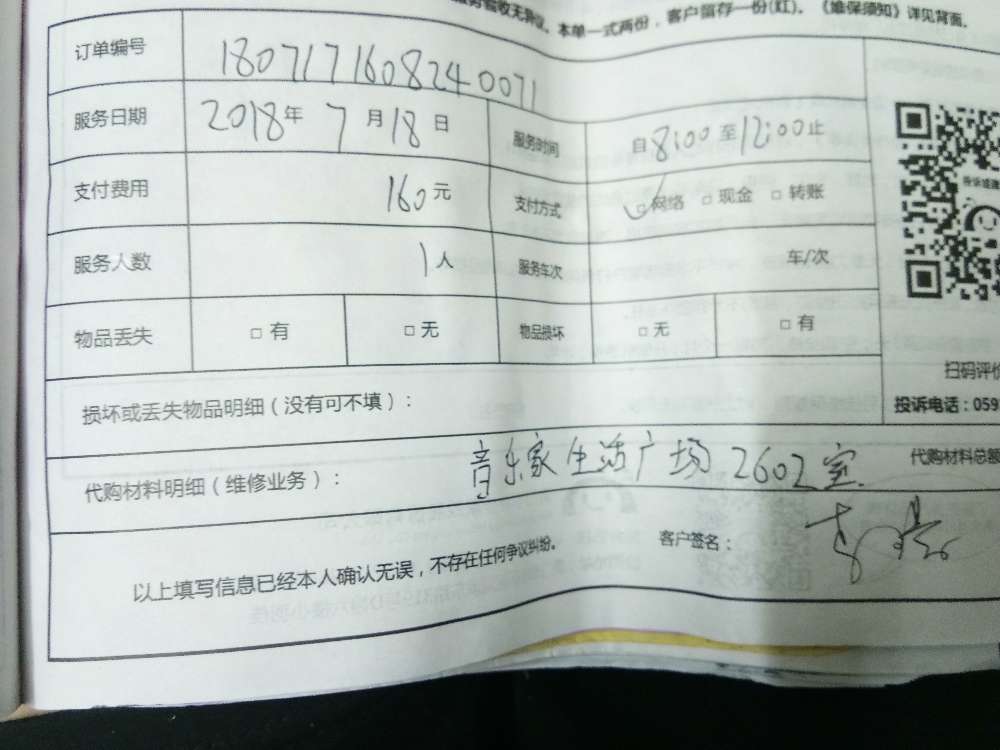 服务验收无异议。本单一式两份，客户留存一份(红)。《维保须知》详见背面。
订单编号 180717160824 0071
服务日期 2018年 7月18日 服务时间 自8:00至12:00止
支付费用 160元 支付方式 □网络 □现金 □转账
服务人数 1人 服务车次 车/次
物品丢失 □有 □无 物品损坏 □无 □有
扫码评价
损坏或丢失物品明细（没有可不填）： 投诉电话：059
代购材料明细（维修业务）： 音乐家生活广场2602室 代购材料总额
以上填写信息已经本人确认无误，不存在任何争议纠纷。 客户签名：